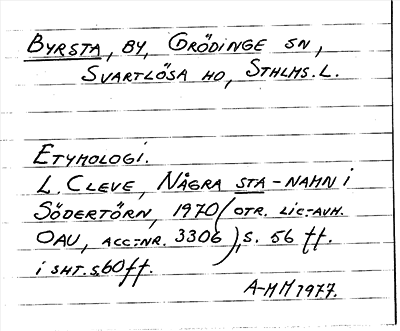 BYRSTA, BY, GRÖDINGE SN,
SVARTLÖSA HD, STHLMS. L.
ETYMOLOGI.
L. CLEVE, NÅGRA STA-NAMN I
SÖDERTÖRN, 1970 (OTR. LIC-AVH.
OAU, ACC-NR. 3306), S. 56 ff.
i SHT. S. 60 ff.
A-MM 1977.